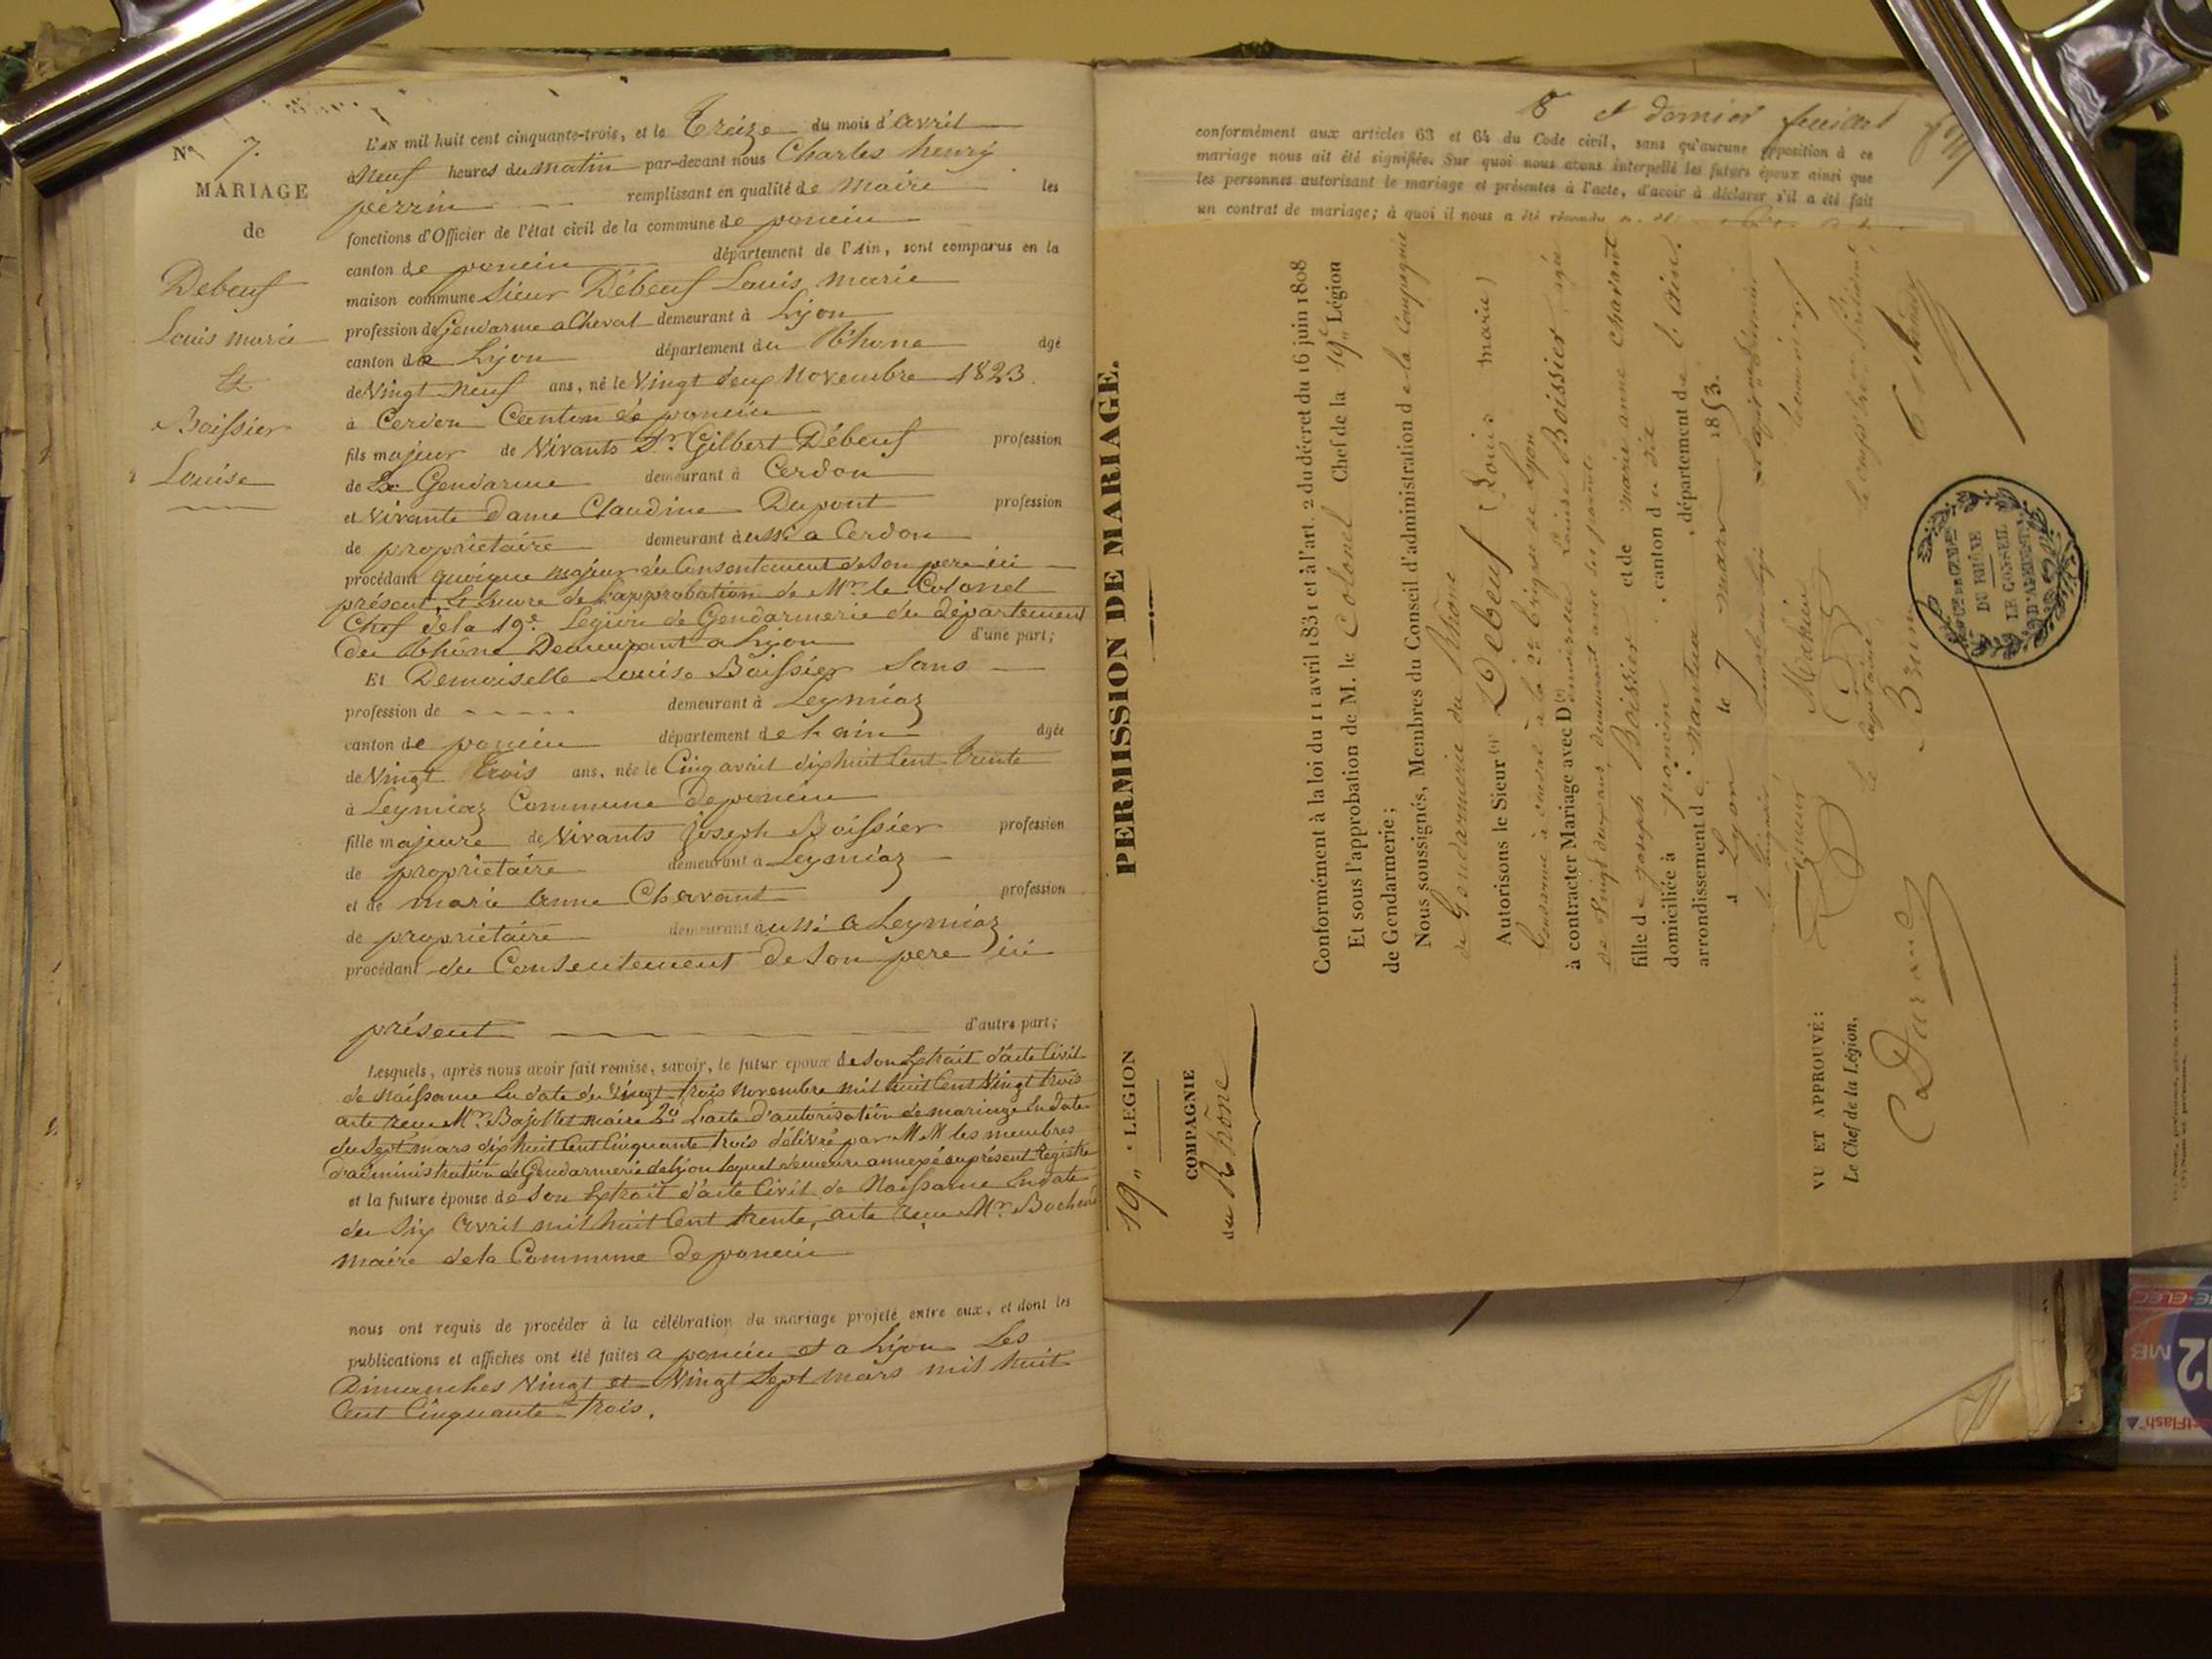 N° 7.
MARIAGE
de
Debeuf
Louis marie
Et
Boissier
Louise
L'AN mil huit cent cinquante-trois, et le Treize du mois d'avril
à Neuf heures du matin par-devant nous Charles henry
perrin remplissant en qualité de maire les
fonctions d'Officier de l'état civil de la commune de poncin
canton de poncin département de l'Ain, sont comparus en la
maison commune Sieur Débeuf Louis marie
profession de Gendarme a Cheval demeurant à Lyon
canton de Lyon département du Rhone âgé
de Vingt neuf ans, né le Vingt deux Novembre 1823.
à Cerdon Canton de poncin
fils majeur de Vivants Sr. Gilbert Débeuf profession
de Ex Gendarme demeurant à Cerdon
et Vivante Dame Claudine Dupont profession
de propriétaire demeurant aussi a Cerdon
procédant quoique majeur du Consentement de son pere ici
présent, Et Encore de l'approbation de Mr. le Colonel
Chef de la 19e Légion de Gendarmerie du département
du Rhône Demeurant a Lyon d'une part;
Et Demoiselle Louise Boissier Sans
profession de demeurant à Leymiaz
canton de poncin département de L'ain âgée
de Vingt Trois ans, née le Cinq avril dix huit Cent Trente
à Leymiaz Commune de poncin
fille majeure de Vivants Joseph Boissier profession
de propriétaire demeurant à Leymiaz
et de marie anne Charvant profession
de propriétaire demeurant aussi a Leymiaz
procédant du Consentement De son pere ici
présent d'autre part;
Lesquels, après nous avoir fait remise, savoir, le futur époux de son Extrait d'acte Civil
de Naissance En date du Vingt trois Novembre mil huit Cent Vingt trois
acte reçu Mr. maire 2o L'acte d'autorisation de mariage En date
du Sept mars dix huit Cent Cinquante trois délivré par M M les membres
D'administration de Gendarmerie de Lyon lequel demeure annexé au présent Registre
et la future épouse de son Extrait d'acte Civil de Naissance En date
du Six avril mil huit Cent trente, acte reçu Mr.
maire de la Commune de poncin
nous ont requis de procéder à la célébration du mariage projeté entre eux, et dont les
publications et affiches ont été faites a poncin et a Lyon Les
Dimanches Vingt et Vingt Sept mars mil huit
Cent Cinquante trois.
8 et dernier feuillet
conformément aux articles 63 et 64 du Code civil, sans qu'aucune opposition à ce
mariage nous ait été signifiée. Sur quoi nous avons interpellé les futurs époux ainsi que
les personnes autorisant le mariage et présentes à l'acte, d'avoir à déclarer s'il a été fait
un contrat de mariage; à quoi il nous a été répondu
19e LEGION
COMPAGNIE
du Rhône
PERMISSION DE MARIAGE.
Conformément à la loi du 11 avril 1831 et à l'art. 2 du décret du 16 juin 1808
Et sous l'approbation de M. le Colonel Chef de la 19e Légion
de Gendarmerie;
Nous soussignés, Membres du Conseil d'administration de la Compagnie
de Gendarmerie du Rhône
Autorisons le Sieur Debeuf (Louis marie)
Gendarme à cheval à la 2e brigade de Lyon
à contracter Mariage avec Dlle demoiselle Louise Boissier, agée
de Vingt deux ans, demeurant avec ses parents.
fille de joseph Boissier et de marie anne Charvant
domiciliée à poncin, canton du dit
arrondissement de Nantua, département de l'ain.
à Lyon le 7 mars 1853.
Mathieu
Le Capitaine
Brun
VU ET APPROUVÉ:
Le Chef de la Légion,
DU RHÔNE
LE CONSEIL